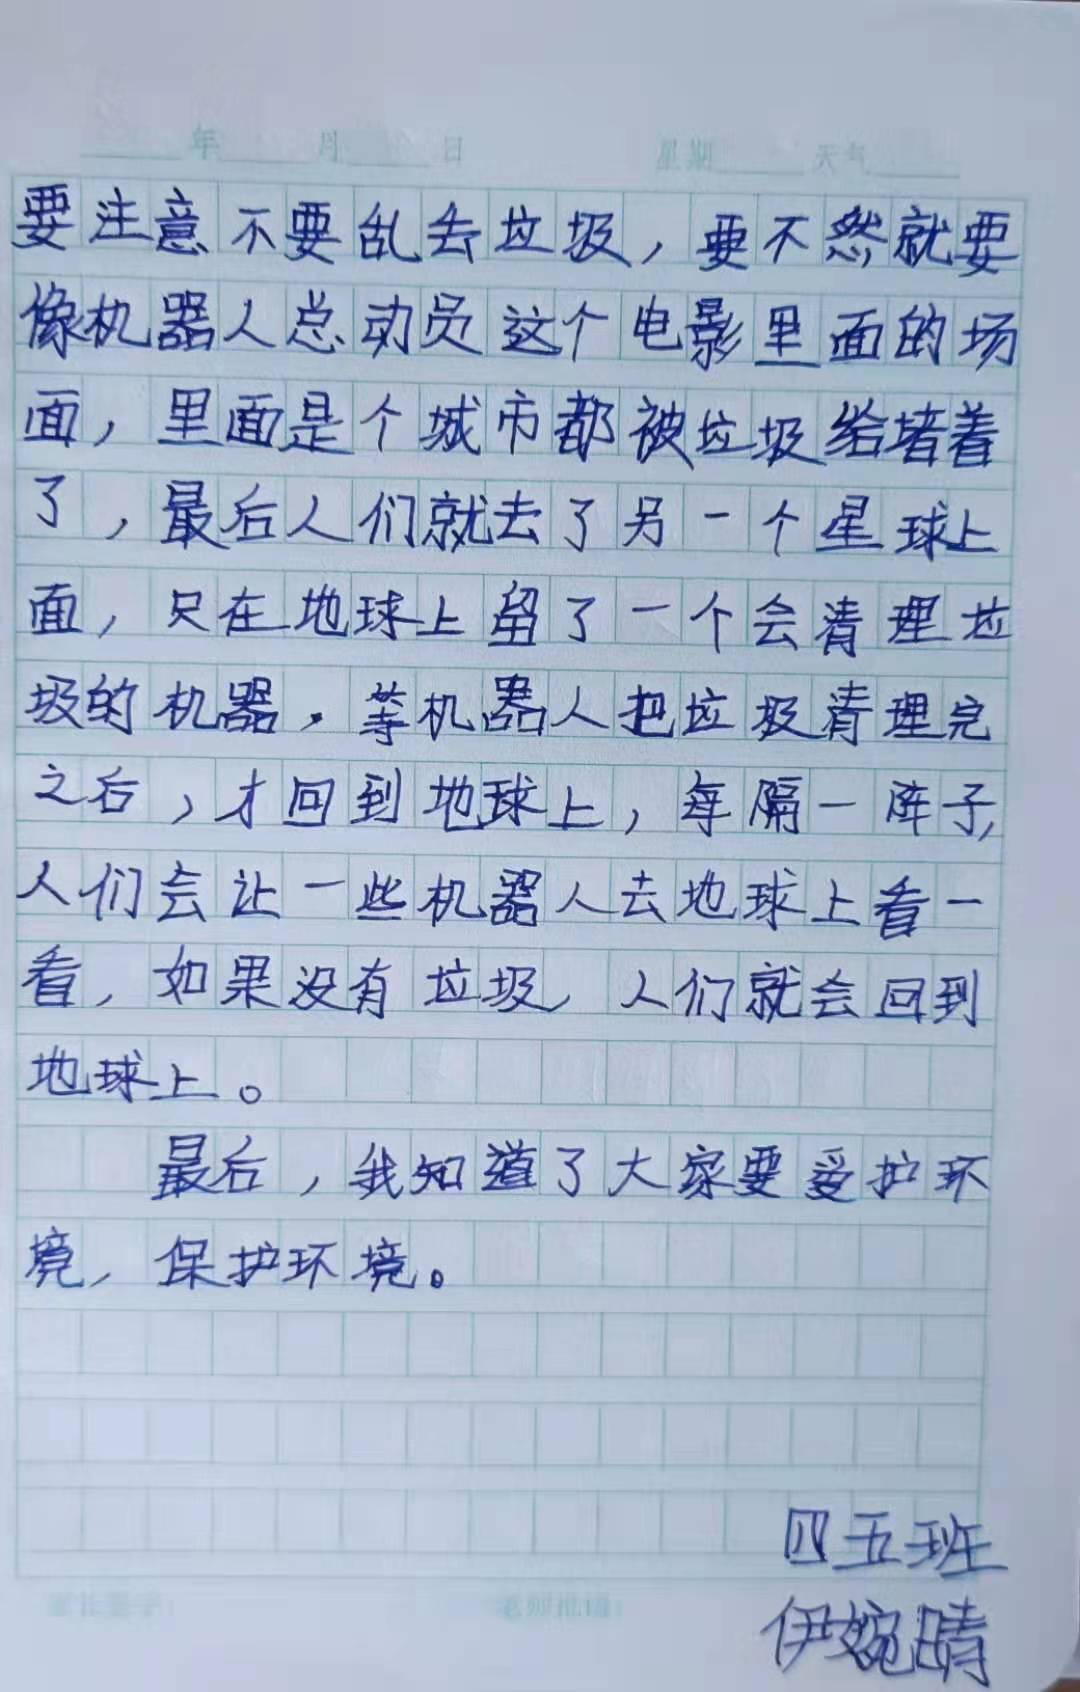 年 月 日 星期 天气
要注意不要乱去垃圾，要不然就要
像机器人总动员这个电影里面的场
面，里面是个城市都被垃圾给堵着
了，最后人们就去了另一个星球上
面，只在地球上留了一个会清理垃
圾的机器，等机器人把垃圾清理完
之后，才回到地球上，每隔一阵子，
人们会让一些机器人去地球上看一
看，如果没有垃圾，人们就会回到
地球上。
最后，我知道了大家要爱护环
境，保护环境。
四五班
伊婉晴